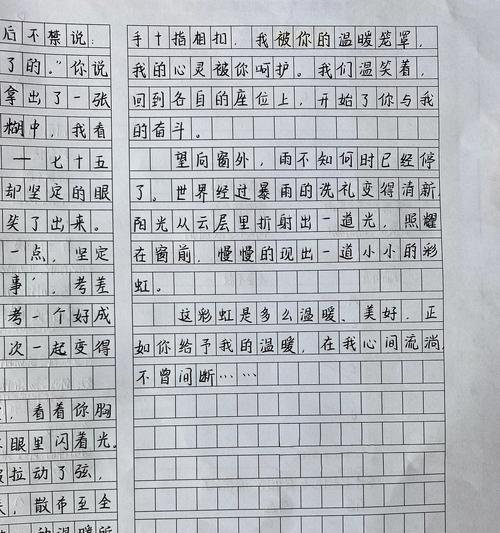 后不禁说:
了的。”你说
拿出了一张
糊中，我看
一七十五
却坚定的眼
笑了出来。
一点，坚定
事’，考差
考一个好成
次一起变得
，看着你胸
眼里闪着光。
拉动了弦，
，散布至全
种温暖所
手十指相扣，我被你的温暖笼罩，
我的心灵被你呵护。我们温笑着，
回到各自的座位上，开始了你与我
的奋斗。
望向窗外，雨不知何时已经停
了。世界经过暴雨的洗礼变得清新，
阳光从云层里折射出一道光，照耀
在窗前，慢慢的现出一道小小的彩
虹。
这彩虹是多么温暖、美好，正
如你给予我的温暖，在我心间流淌，
不曾间断……